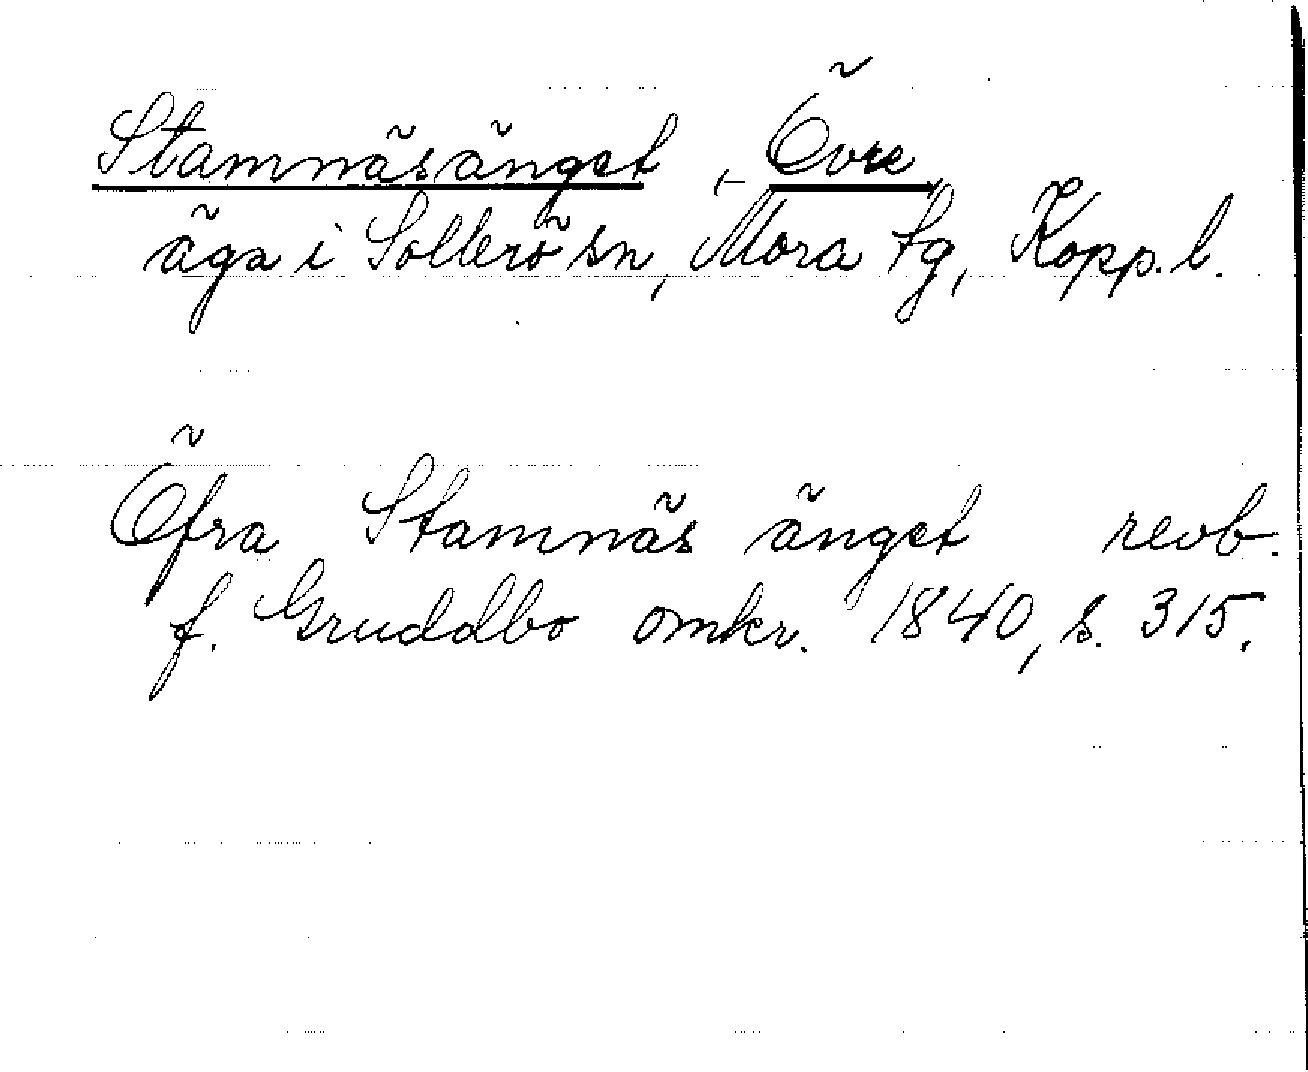 Stamnäsänget, Övre,
äga i Sollerö sn, Mora tg, Kopp. l.
Öfra Stamnäs änget revb.
f. Gruddbo omkr. 1840, s. 315.